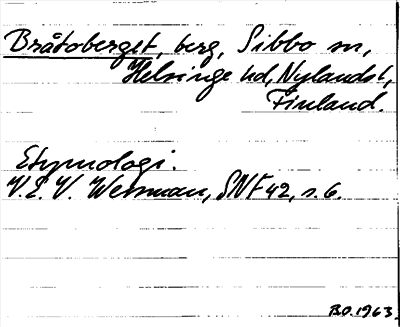 Bråtoberget, berg, Sibbo sn,
Helsinge hd, Nylands l,
Finland.
Etymologi.
V.E.V. Wessman, SNF 42, s. 6.
B.O. 1963.